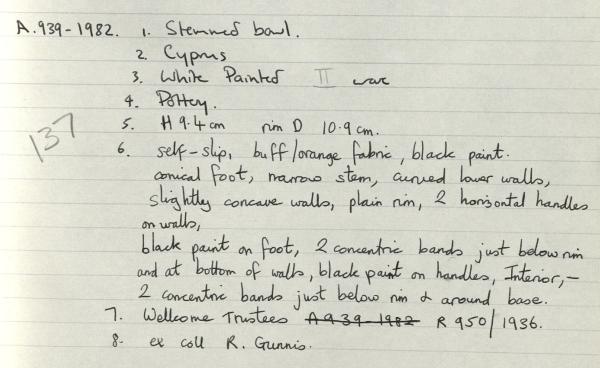 A.939-1982. 1. Stemmed bowl.
2. Cyprus
3. White Painted III ware
4. Pottery.
137
5. H 9.4cm rim D 10.9cm.
6. self-slip, buff/orange fabric, black paint.
conical foot, narrow stem, curved lower walls,
slightly concave walls, plain rim, 2 horizontal handles
on walls,
black paint on foot, 2 concentric bands just below rim
and at bottom of walls, black paint on handles, Interior,-
2 concentric bands just below rim & around base.
7. Wellcome Trustees A939-1982 R 950/1936.
8. ex coll R. Gunnis.